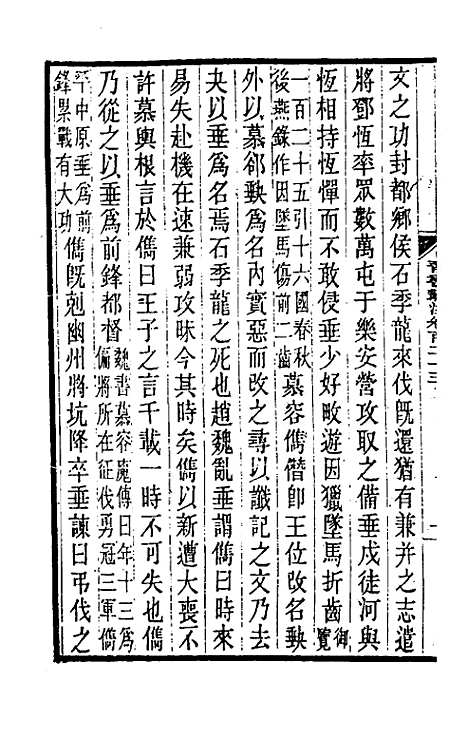 文之功封都鄉侯石季龍來伐既還猶有兼并之志遣
將鄧恆率眾數萬屯于樂安營攻取之備垂戍徒河與
恆相持恆憚而不敢侵垂少好畋遊因獵墜馬折齒御覽
一百二十五引十六國春秋
後燕錄作因墜馬傷前二齒慕容儁僭卽王位改名𡙇
外以慕郤𡙇爲名內實惡而改之尋以讖記之文乃去
夬以垂爲名焉石季龍之死也趙魏亂垂謂儁曰時來
易失赴機在速兼弱攻昧今其時矣儁以新遭大喪不
許慕輿根言於儁曰王子之言千載一時不可失也儁
乃從之以垂爲前鋒都督魏書慕容廆傳曰年十三爲
偏將所在征伐勇冠三軍儁
平中原垂爲前
鋒累戰有大功儁既剋幽州將坑降卒垂諫曰弔伐之